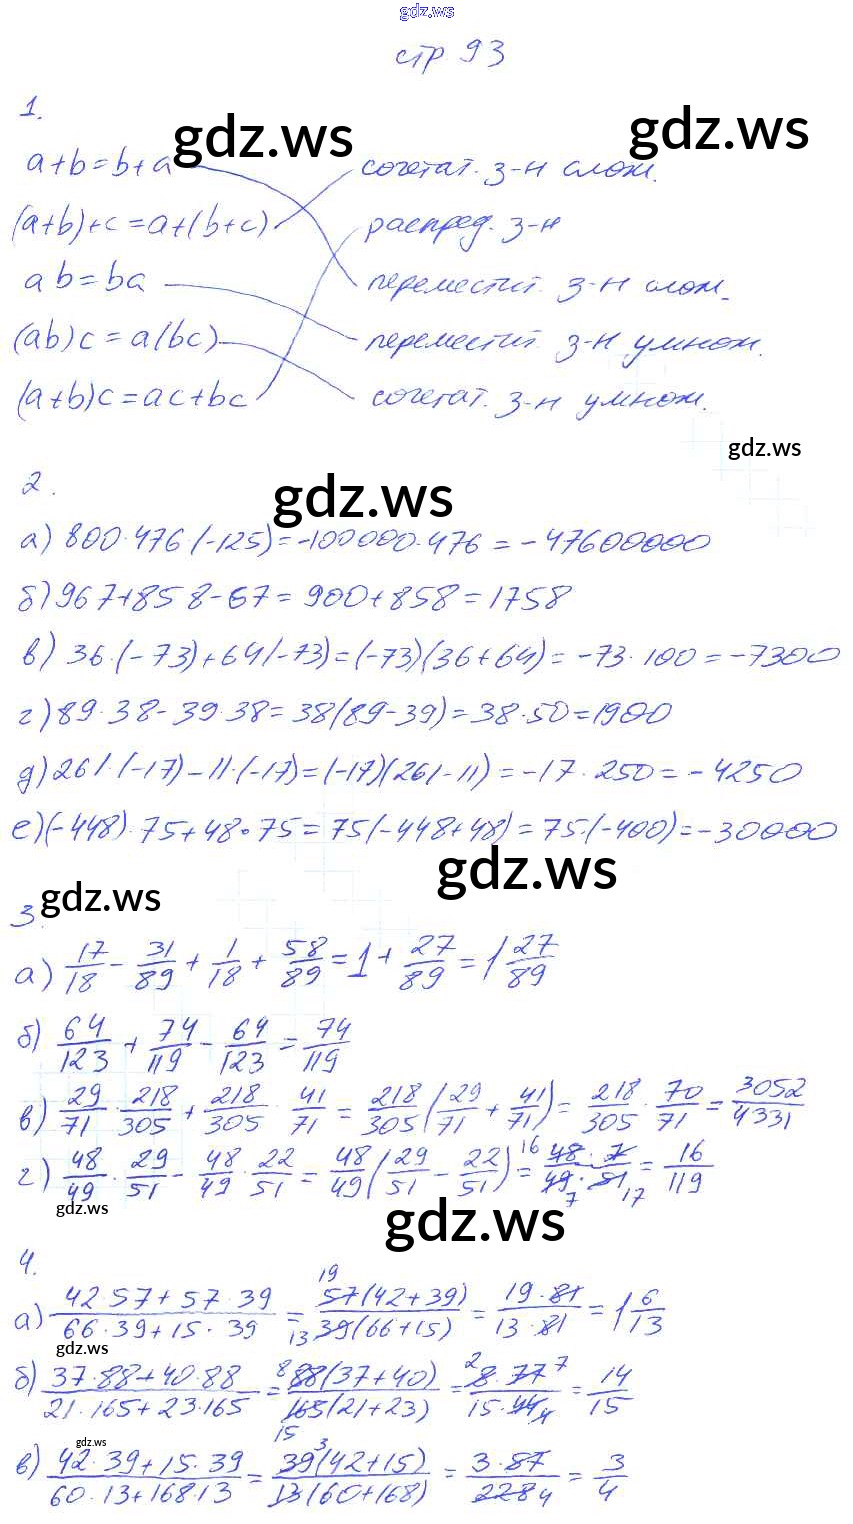 gdz.ws
стр 93
1.
gdz.ws gdz.ws
a+b=b+a сочетат. з-н слож.
(a+b)+c=a+(b+c) распред. з-н
ab=ba переместит. з-н слож.
(ab)c=a(bc) переместит. з-н умнож.
(a+b)c=ac+bc сочетат. з-н умнож.
gdz.ws
2.
gdz.ws
а) 800·476·(-125)=-100000·476=-47600000
б) 967+858-67=900+858=1758
в) 36·(-73)+64(-73)=(-73)(36+64)=-73·100=-7300
г) 89·38-39·38=38(89-39)=38·50=1900
д) 261·(-17)-11·(-17)=(-17)(261-11)=-17·250=-4250
е) (-448)·75+48·75=75(-448+48)=75·(-400)=-30000
gdz.ws
gdz.ws
3.
а) 17/18 - 31/89 + 1/18 + 58/89 = 1 + 27/89 = 1 27/89
б) 64/123 + 74/119 - 64/123 = 74/119
в) 29/71 · 218/305 + 218/305 · 41/71 = 218/305 (29/71 + 41/71) = 218/305 · 70/71 = 3052/4331
г) 48/49 · 29/51 - 48/49 · 22/51 = 48/49 (29/51 - 22/51) = 16 48·7/49·51 7 17 = 16/119
gdz.ws
gdz.ws
4.
а) 42·57+57·39/66·39+15·39 = 19 57(42+39)/13 39(66+15) = 19·81/13·81 = 1 6/13
б) 37·88+40·88/21·165+23·165 = 8 88(37+40)/165(21+23) 15 = 2 8·77 7/15·44 4 = 14/15
gdz.ws
в) 42·39+15·39/60·13+168·13 = 39 3(42+15)/13(60+168) = 3·87/228 4 = 3/4